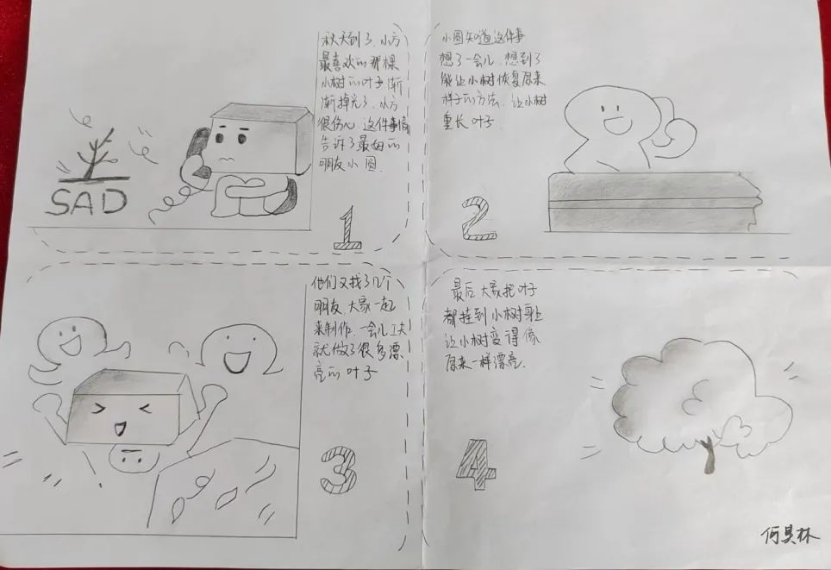 秋天到了，小方
最喜欢的那棵
小树的叶子渐
渐掉光了，小方
很伤心，这件事情
告诉了最好的
朋友小圆
SAD
1
小圆知道这件事
想了一会儿，想到了
能让小树恢复原来
样子的方法，让小树
重长叶子
2
他们又找了几个
朋友，大家一起
来制作，一会儿工夫
就做了很多漂
亮的叶子
3
最后大家把叶子
都挂到小树身上
让小树变得像
原来一样漂亮.
4